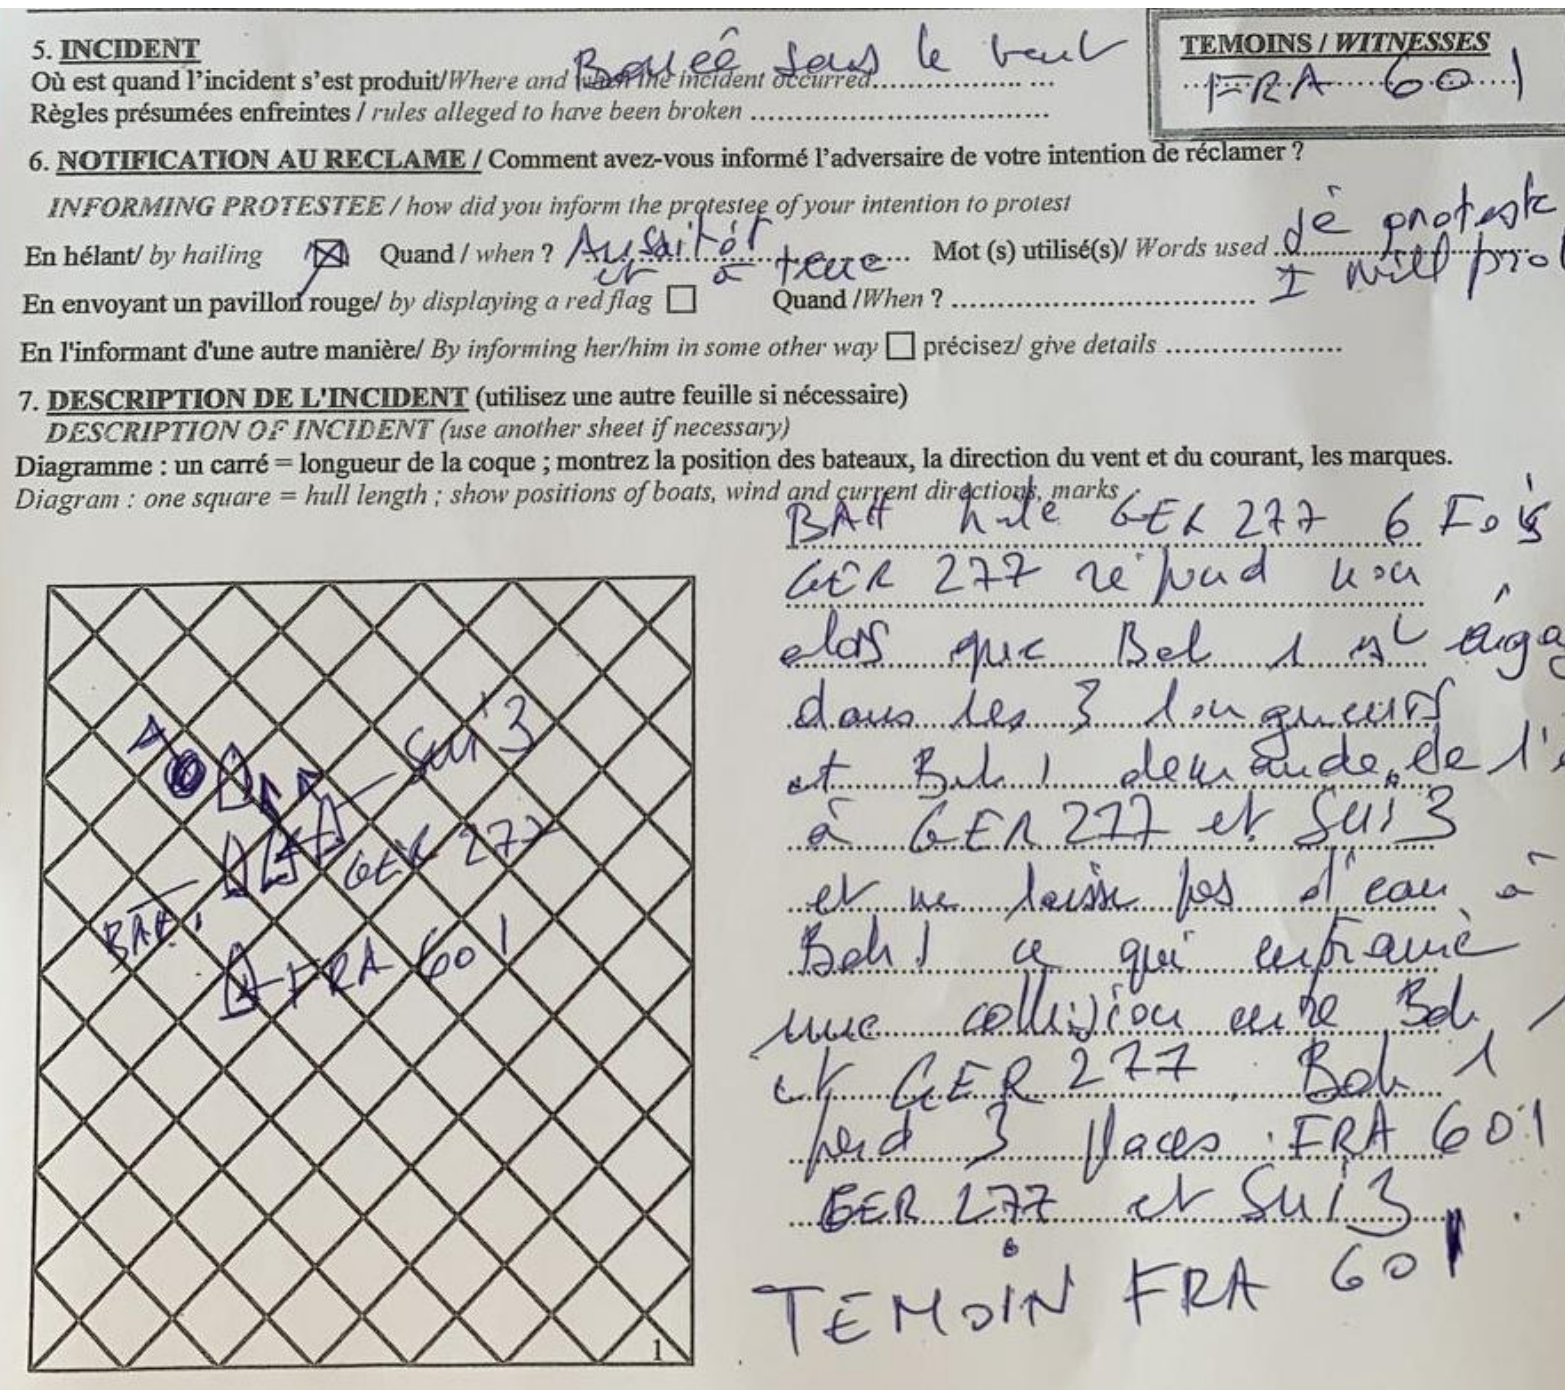 5. INCIDENT
Bouée sous le vent
TEMOINS / WITNESSES
Où est quand l'incident s'est produit/Where and when the incident occurred
FRA 601
Règles présumées enfreintes / rules alleged to have been broken
6. NOTIFICATION AU RECLAME / Comment avez-vous informé l'adversaire de votre intention de réclamer ?
INFORMING PROTESTEE / how did you inform the protestee of your intention to protest
En hélant/ by hailing Quand / when ? Aussitôt et à terre Mot (s) utilisé(s)/ Words used je proteste
I will pro
En envoyant un pavillon rouge/ by displaying a red flag Quand /When ?
En l'informant d'une autre manière/ By informing her/him in some other way précisez/ give details
7. DESCRIPTION DE L'INCIDENT (utilisez une autre feuille si nécessaire)
DESCRIPTION OF INCIDENT (use another sheet if necessary)
Diagramme : un carré = longueur de la coque ; montrez la position des bateaux, la direction du vent et du courant, les marques.
Diagram : one square = hull length ; show positions of boats, wind and current directions, marks
BAH hèle GER 277 6 Fois
GER 277 répond non
alors que Bah 1 est enga
dans les 3 longueurs
et Bah 1 demande de l'e
à GER 277 et Sui 3
et ne laisse pas d'eau à
Bah 1 ce qui entraine
une collision entre Bah 1
et GER 277. Bah 1
perd 3 places : FRA 601
GER 277 et Sui 3
TEMOIN FRA 601
Sui 3
GER 277
BAH 1
FRA 601
1